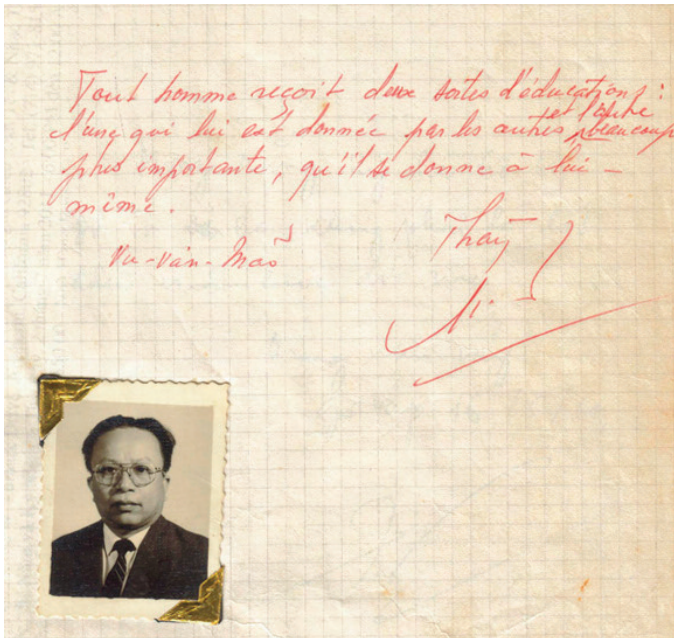 Tout homme reçoit deux sortes d'éducation :
l'une qui lui est donnée par les autres, et l'autre beaucoup
plus importante, qu'il se donne à lui-
même.
Vu-Văn-Mão
Thầy